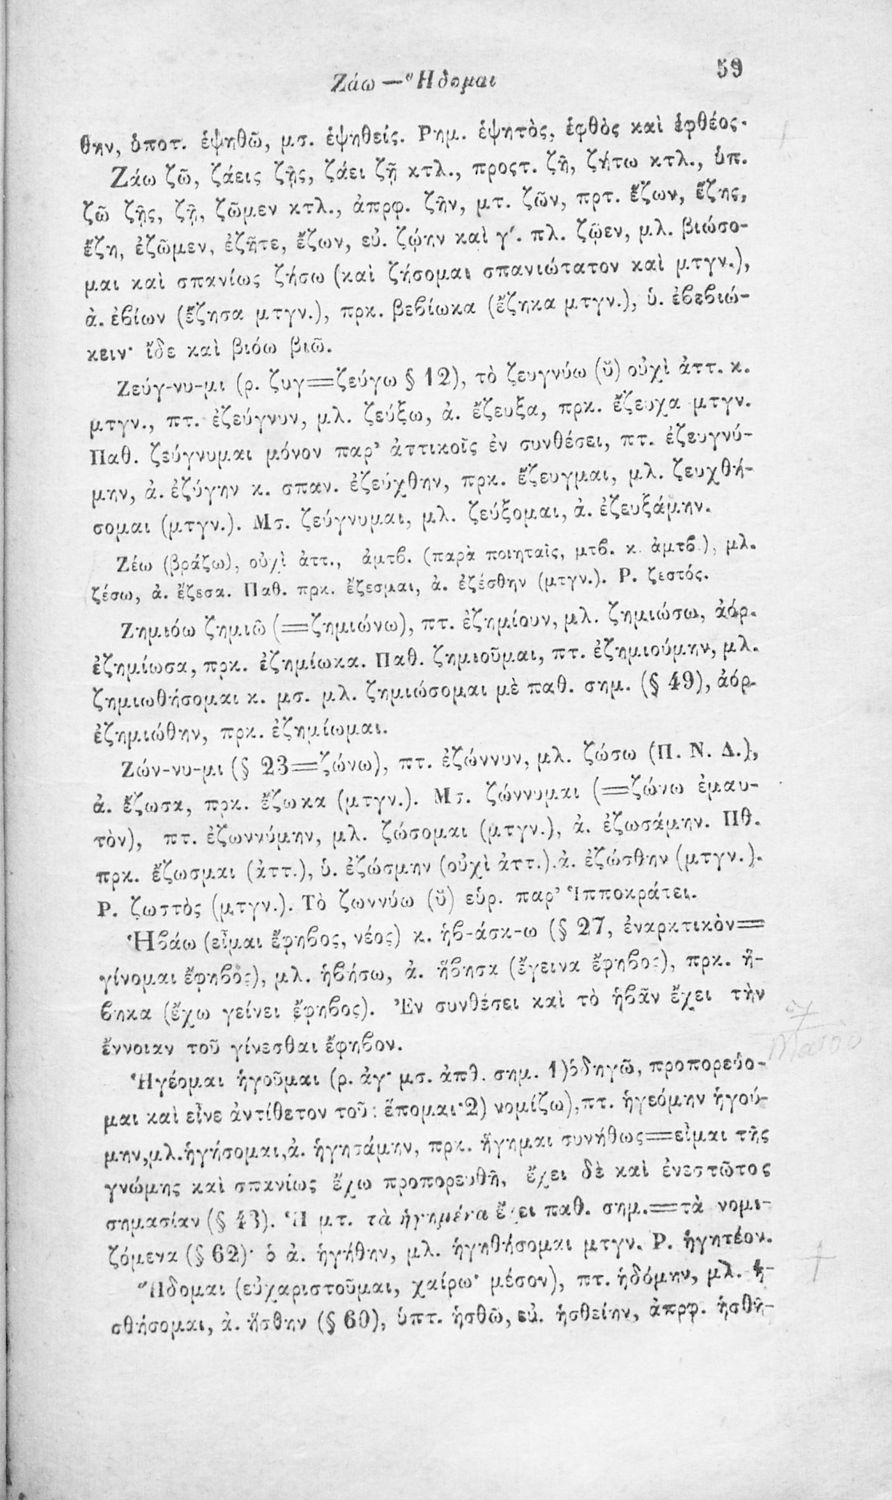 Ζάω — Ἥδομαι
59
θην, ὑποτ. ἑψηθῶ, μσ. ἑψηθείς. Ρημ. ἑψητὸς, ἑφθὸς καὶ ἑφθέος·
Ζάω ζῶ, ζάεις ζῇς, ζάει ζῇ κτλ., προςτ. ζῆ, ζήτω κτλ., ὑπ.
ζῶ ζῇς, ζῇ, ζῶμεν κτλ., ἀπρφ. ζῆν, μτ. ζῶν, πρτ. ἔζων, ἔζης,
ἔζη, ἐζῶμεν, ἐζῆτε, ἔζων, εὐ. ζῴην καὶ γ΄. πλ. ζῷεν, μλ. βιώσο-
μαι καὶ σπανίως ζήσω (καὶ ζήσομαι σπανιώτατον καὶ μτγν.),
ἀ. ἐβίων (ἔζησα μτγν.), πρκ. βεβίωκα (ἔζηκα μτγν.), ὑ. ἐβεβιώ-
κειν· ἴδε καὶ βιόω βιῶ.
Ζεύγ-νυ-μι (ρ. ζυγ=ζεύγω § 12), τὸ ζευγνύω (ῠ) οὐχὶ ἀττ. κ.
μτγν., πτ. ἐζεύγνυν, μλ. ζεύξω, ἀ. ἔζευξα, πρκ. ἔζευχα μτγν.
Παθ. ζεύγνυμαι μόνον παρ' ἀττικοῖς ἐν συνθέσει, πτ. ἐζευγνύ-
μην, ἀ. ἐζύγην κ. σπαν. ἐζεύχθην, πρκ. ἔζευγμαι, μλ. ζευχθή-
σομαι (μτγν.). Μσ. ζεύγνυμαι, μλ. ζεύξομαι, ἀ. ἐζευξάμην.
Ζέω (βράζω), οὐχὶ ἀττ., ἀμτβ. (παρὰ ποιηταῖς, μτβ. κ. ἀμτβ.), μλ.
ζέσω, ἀ. ἔζεσα. Παθ. πρκ. ἔζεσμαι, ἀ. ἐζέσθην (μτγν.). Ρ. ζεστός.
Ζημιόω ζημιῶ (=ζημιώνω), πτ. ἐζημίουν, μλ. ζημιώσω, ἀόρ.
ἐζημίωσα, πρκ. ἐζημίωκα. Παθ. ζημιοῦμαι, πτ. ἐζημιούμην, μλ.
ζημιωθήσομαι κ. μσ. μλ. ζημιώσομαι μὲ παθ. σημ. (§ 49), ἀόρ.
ἐζημιώθην, πρκ. ἐζημίωμαι.
Ζών-νυ-μι (§ 23=ζώνω), πτ. ἐζώννυν, μλ. ζώσω (Π. Ν. Δ.),
ἀ. ἔζωσα, πρκ. ἔζωκα (μτγν.). Μσ. ζώννυμαι (=ζώνω ἐμαυ-
τὸν), πτ. ἐζωννύμην, μλ. ζώσομαι (μτγν.), ἀ. ἐζωσάμην. Πθ.
πρκ. ἔζωσμαι (ἀττ.), ὑ. ἐζώσμην (οὐχὶ ἀττ.). ἀ. ἐζώσθην (μτγν.).
Ρ. ζωστὸς (μτγν.). Τὸ ζωννύω (ῠ) εὑρ. παρ' Ἱπποκράτει.
Ἡβάω (εἶμαι ἔφηβος, νέος) κ. ἡβ-άσκ-ω (§ 27, ἐναρκτικὸν=
γίνομαι ἔφηβος), μλ. ἡβήσω, ἀ. ἥβησα (ἔγεινα ἔφηβος), πρκ. ἥ-
βηκα (ἔχω γείνει ἔφηβος). Ἐν συνθέσει καὶ τὸ ἡβᾶν ἔχει τὴν
ἔννοιαν τοῦ γίνεσθαι ἔφηβον.
Ἡγέομαι ἡγοῦμαι (ρ. ἀγ· μσ. ἀπθ. σημ. 1) ὁδηγῶ, προπορεύο-
μαι καὶ εἶνε ἀντίθετον τοῦ: ἕπομαι· 2) νομίζω), πτ. ἡγεόμην ἡγού-
μην, μλ. ἡγήσομαι, ἀ. ἡγησάμην, πρκ. ἥγημαι συνήθως=εἶμαι τῆς
γνώμης καὶ σπανίως ἔχω προπορευθῆ, ἔχει δὲ καὶ ἐνεστῶτος
σημασίαν (§ 43). Ἡ μτ. τὰ ἡγημένα ἔχει παθ. σημ.=τὰ νομι-
ζόμενα (§ 62)· ὁ ἀ. ἡγήθην, μλ. ἡγηθήσομαι μτγν. Ρ. ἡγητέον.
Ἥδομαι (εὐχαριστοῦμαι, χαίρω· μέσον), πτ. ἡδόμην, μλ. ἡ-
σθήσομαι, ἀ. ἥσθην (§ 60), ὑπτ. ἡσθῶ, εὐ. ἡσθείην, ἀπρφ. ἡσθῆ-